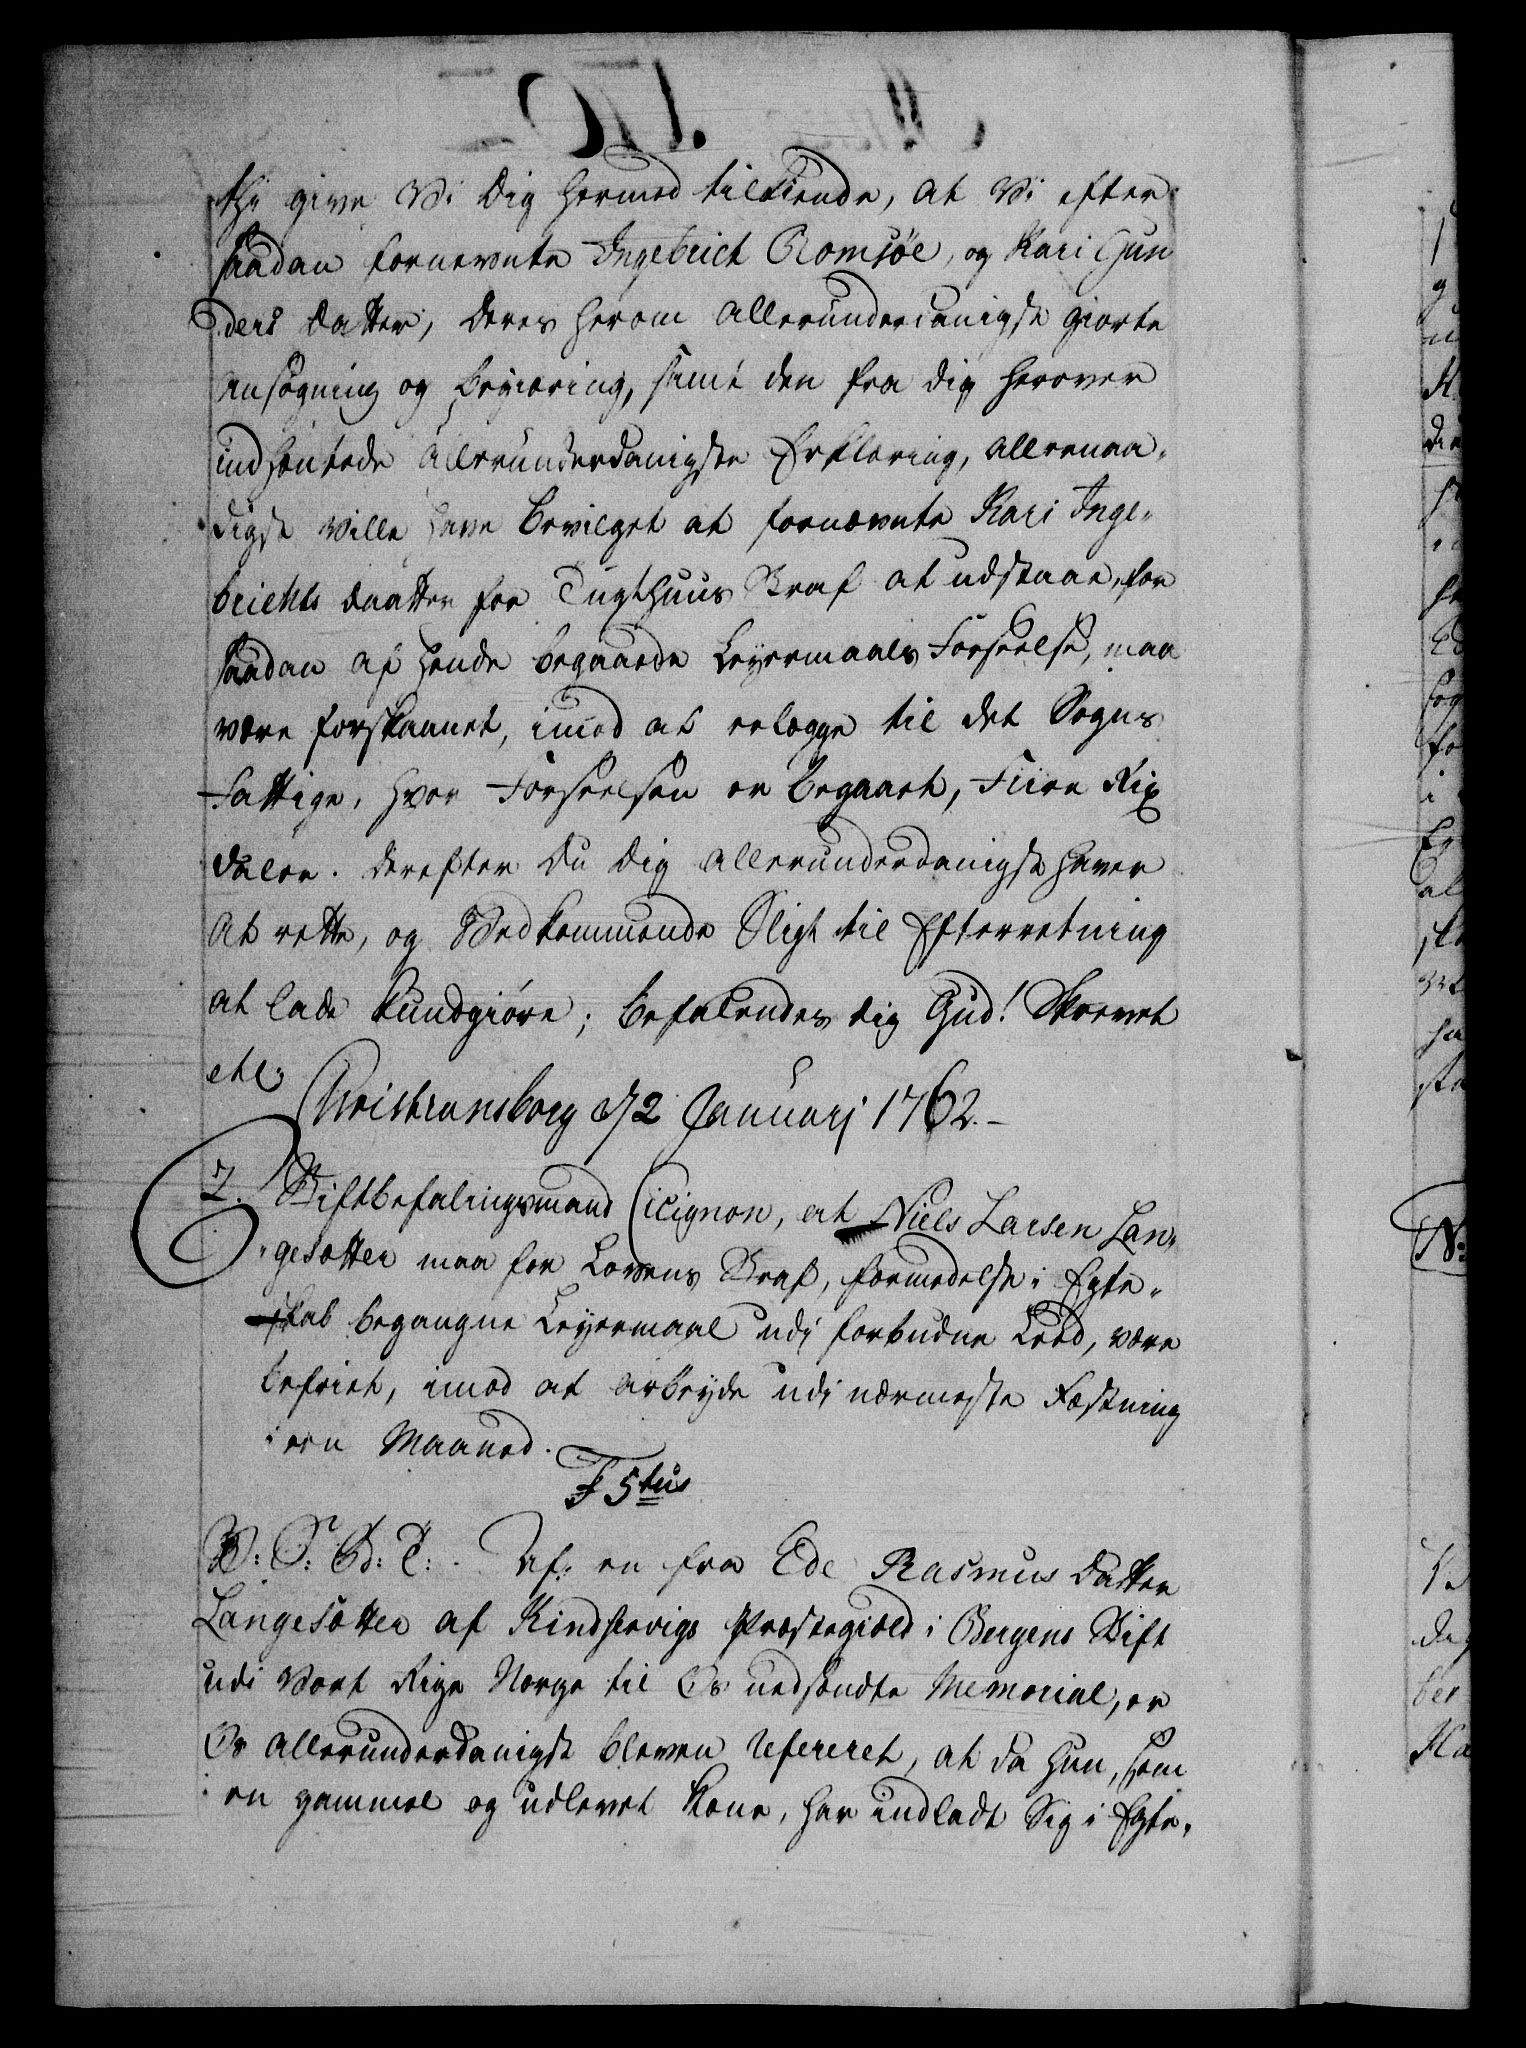 thi give Vi Dig hermed tilkiende, at Vi efter
saadan fornevnte Ingebrict Romsøe, og Kari Gun
ders Datter, deres herom allerunderdanigst giorte
Ansøgning og begiæring, samt den fra dig herover
indhentede allerunderdanigste Erklæring, allernaa-
digst ville have bevilget at fornævnte Kari Inge-
brichts Daatter for Tugthuus Straf at udstaae, for
saadan af hende begaaede Leyermaals Forseelse, maa
være forskaanet, imod at erlægge til det Sogns
Fattige, hvor Forseelsen er begaaet, Fiire Rix
daler. Derefter Du Dig allerunderdanigst haver
at rette, og Vedkommende Sligt til Efterretning
at lade kundgiøre; befalendes dig Gud! Skrevet
etc.
Christiansborg d 2 Januarj 1762.-
2. Stiftbefalingsmand Cicignon, at Niels Larsen Lan-
gesætter maa for Lovens Straf, formedelst i Egte-
skab begangne Leyermaal udj forbudne Leed, være
befriet, imod at arbeyde udj nærmeste Fæstning
i een Maaned.
F 5tus
V: S: G: T: Af en fra Ede Rasmus Datter
Langesætter af Kindservigs Præstegield i Bergens Stift
udi Vort Rige Norge til Os nedsendte Memorial, er
Os allerunderdanigst bleven refereret, at da hun, som
en gammel og udlevet Kone, har indladt Sig i Egte-